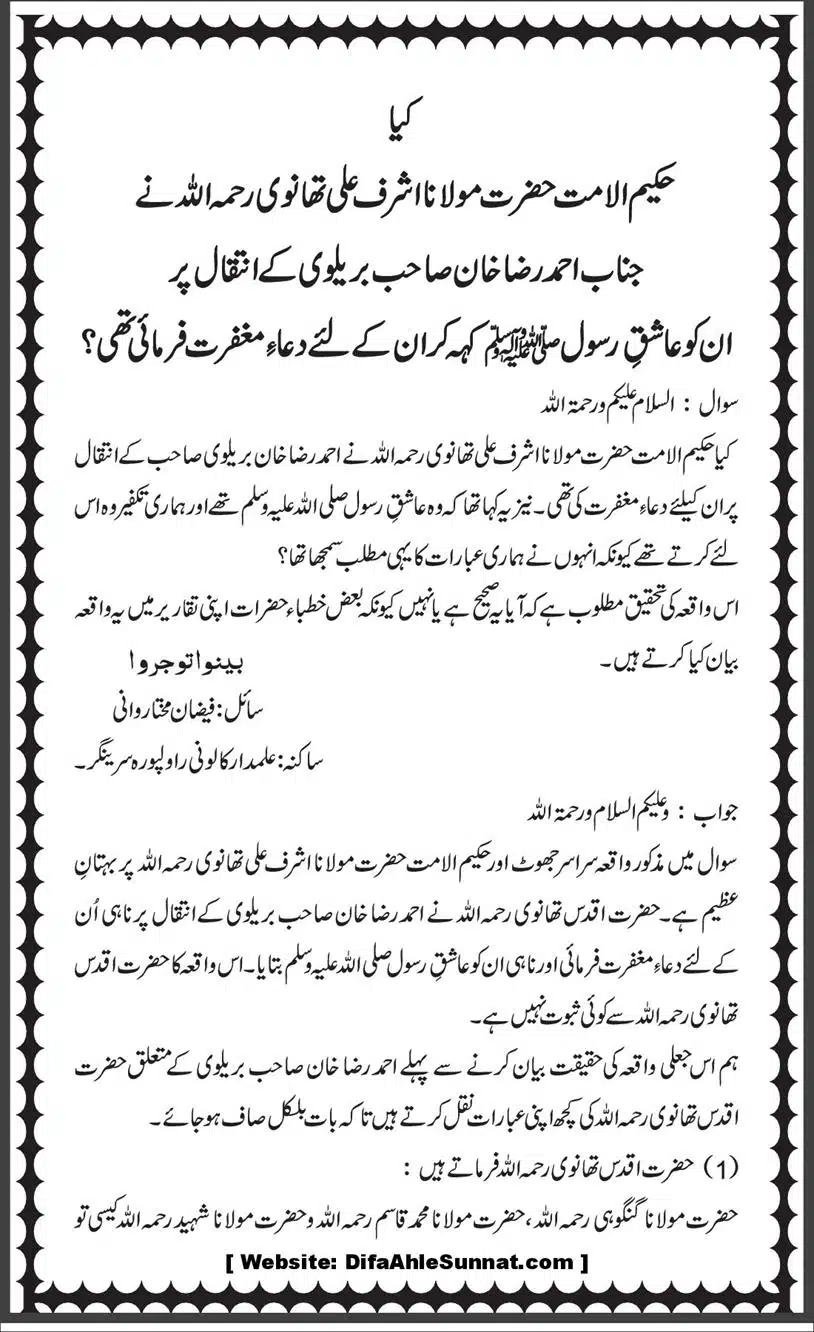 کیا
حکیم الامت حضرت مولانا اشرف علی تھانوی رحمہ اللہ نے
جناب احمد رضا خان صاحب بریلوی کے انتقال پر
ان کو عاشقِ رسول ﷺ کہہ کر ان کے لئے دعاءِ مغفرت فرمائی تھی؟
سوال : السلام علیکم ورحمۃ اللہ
کیا حکیم الامت حضرت مولانا اشرف علی تھانوی رحمہ اللہ نے احمد رضا خان بریلوی صاحب کے انتقال
پر ان کیلئے دعاءِ مغفرت کی تھی۔ نیز یہ کہا تھا کہ وہ عاشقِ رسول صلی اللہ علیہ وسلم تھے اور ہماری تکفیر وہ اس
لئے کرتے تھے کیونکہ انہوں نے ہماری عبارات کا یہی مطلب سمجھا تھا؟
اس واقعہ کی تحقیق مطلوب ہے کہ آیا یہ صحیح ہے یا نہیں کیونکہ بعض خطباء حضرات اپنی تقاریر میں یہ واقعہ
بیان کیا کرتے ہیں۔ بینوا توجروا
سائل: فیضان مختار وانی
ساکنہ: علمدار کالونی راولپورہ سرینگر۔
جواب : وعلیکم السلام ورحمۃ اللہ
سوال میں مذکور واقعہ سراسر جھوٹ اور حکیم الامت حضرت مولانا اشرف علی تھانوی رحمہ اللہ پر بہتانِ
عظیم ہے۔ حضرت اقدس تھانوی رحمہ اللہ نے احمد رضا خان صاحب بریلوی کے انتقال پر نا ہی اُن
کے لئے دعاءِ مغفرت فرمائی اور نا ہی ان کو عاشقِ رسول صلی اللہ علیہ وسلم بتایا۔ اس واقعہ کا حضرت اقدس
تھانوی رحمہ اللہ سے کوئی ثبوت نہیں ہے۔
ہم اس جعلی واقعہ کی حقیقت بیان کرنے سے پہلے احمد رضا خان صاحب بریلوی کے متعلق حضرت
اقدس تھانوی رحمہ اللہ کی کچھ اپنی عبارات نقل کرتے ہیں تاکہ بات بلکل صاف ہو جائے۔
(1) حضرت اقدس تھانوی رحمہ اللہ فرماتے ہیں :
حضرت مولانا گنگوہی رحمہ اللہ، حضرت مولانا محمد قاسم رحمہ اللہ و حضرت مولانا شہید رحمہ اللہ کیسی تو
[ Website: DifaAhleSunnat.com ]